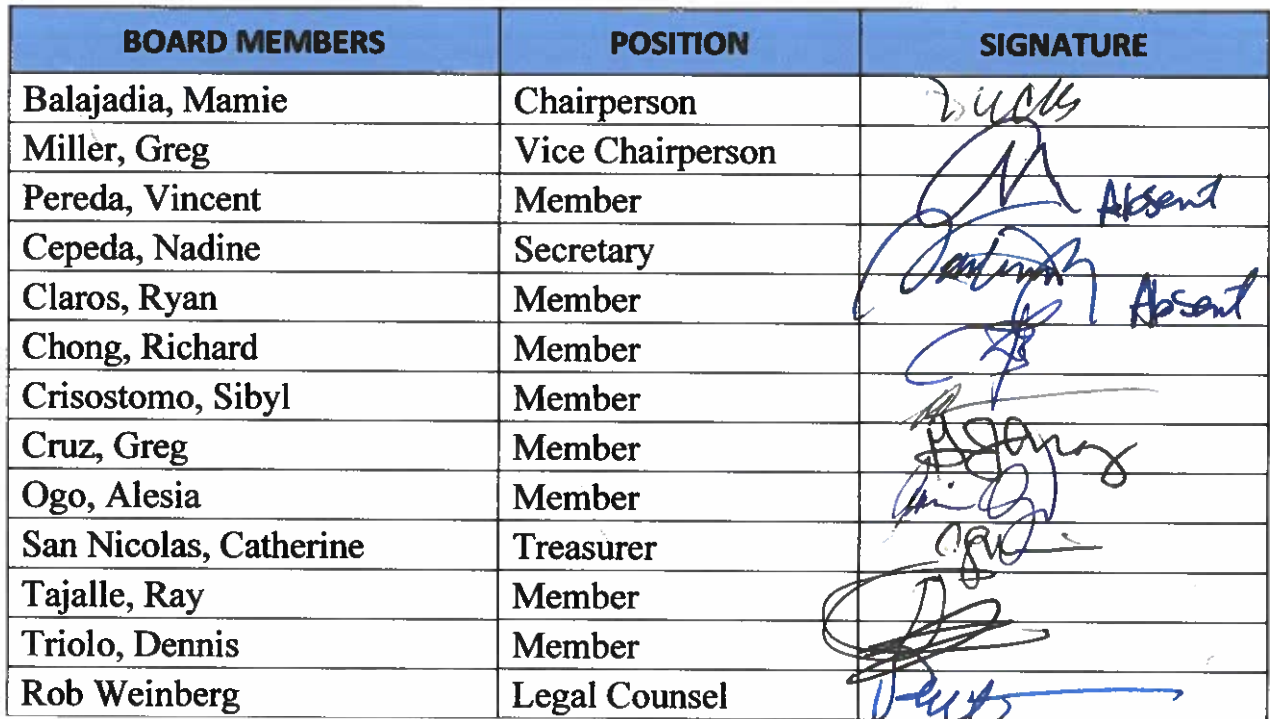 BOARD MEMBERS POSITION SIGNATURE
Balajadia, Mamie Chairperson
Miller, Greg Vice Chairperson
Pereda, Vincent Member Absent
Cepeda, Nadine Secretary
Claros, Ryan Member Absent
Chong, Richard Member
Crisostomo, Sibyl Member
Cruz, Greg Member
Ogo, Alesia Member
San Nicolas, Catherine Treasurer
Tajalle, Ray Member
Triolo, Dennis Member
Rob Weinberg Legal Counsel